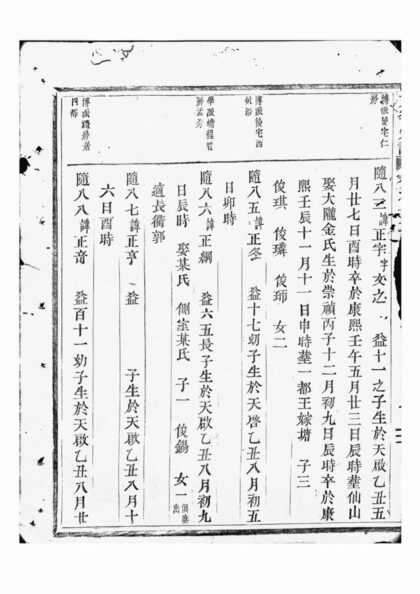 隨八三諱正字字文之 益十一之子生於天啟乙丑五
月廿七日酉時卒於康熙壬午五月廿三日辰時塟仙山
娶大隴金氏生於崇禎丙子十二月初九日辰時卒於康
熙壬辰十一月十一日申時塟一都王嫁塘 子三
俊琪 俊璘 俊珋 女二
隨八五諱正冬 益十七幼子生於天啓乙丑八月初五
日卯時
隨八六諱正綱 益六五長子生於天啟乙丑八月初九
日辰時 娶某氏 側室某氏 子一 俊錫 女一俱側出
適長衢郭
隨八七諱正亨 益 子生於天啟乙丑八月十
六日酉時
隨八八諱正音 益百十一幼子生於天啟乙丑八月廿